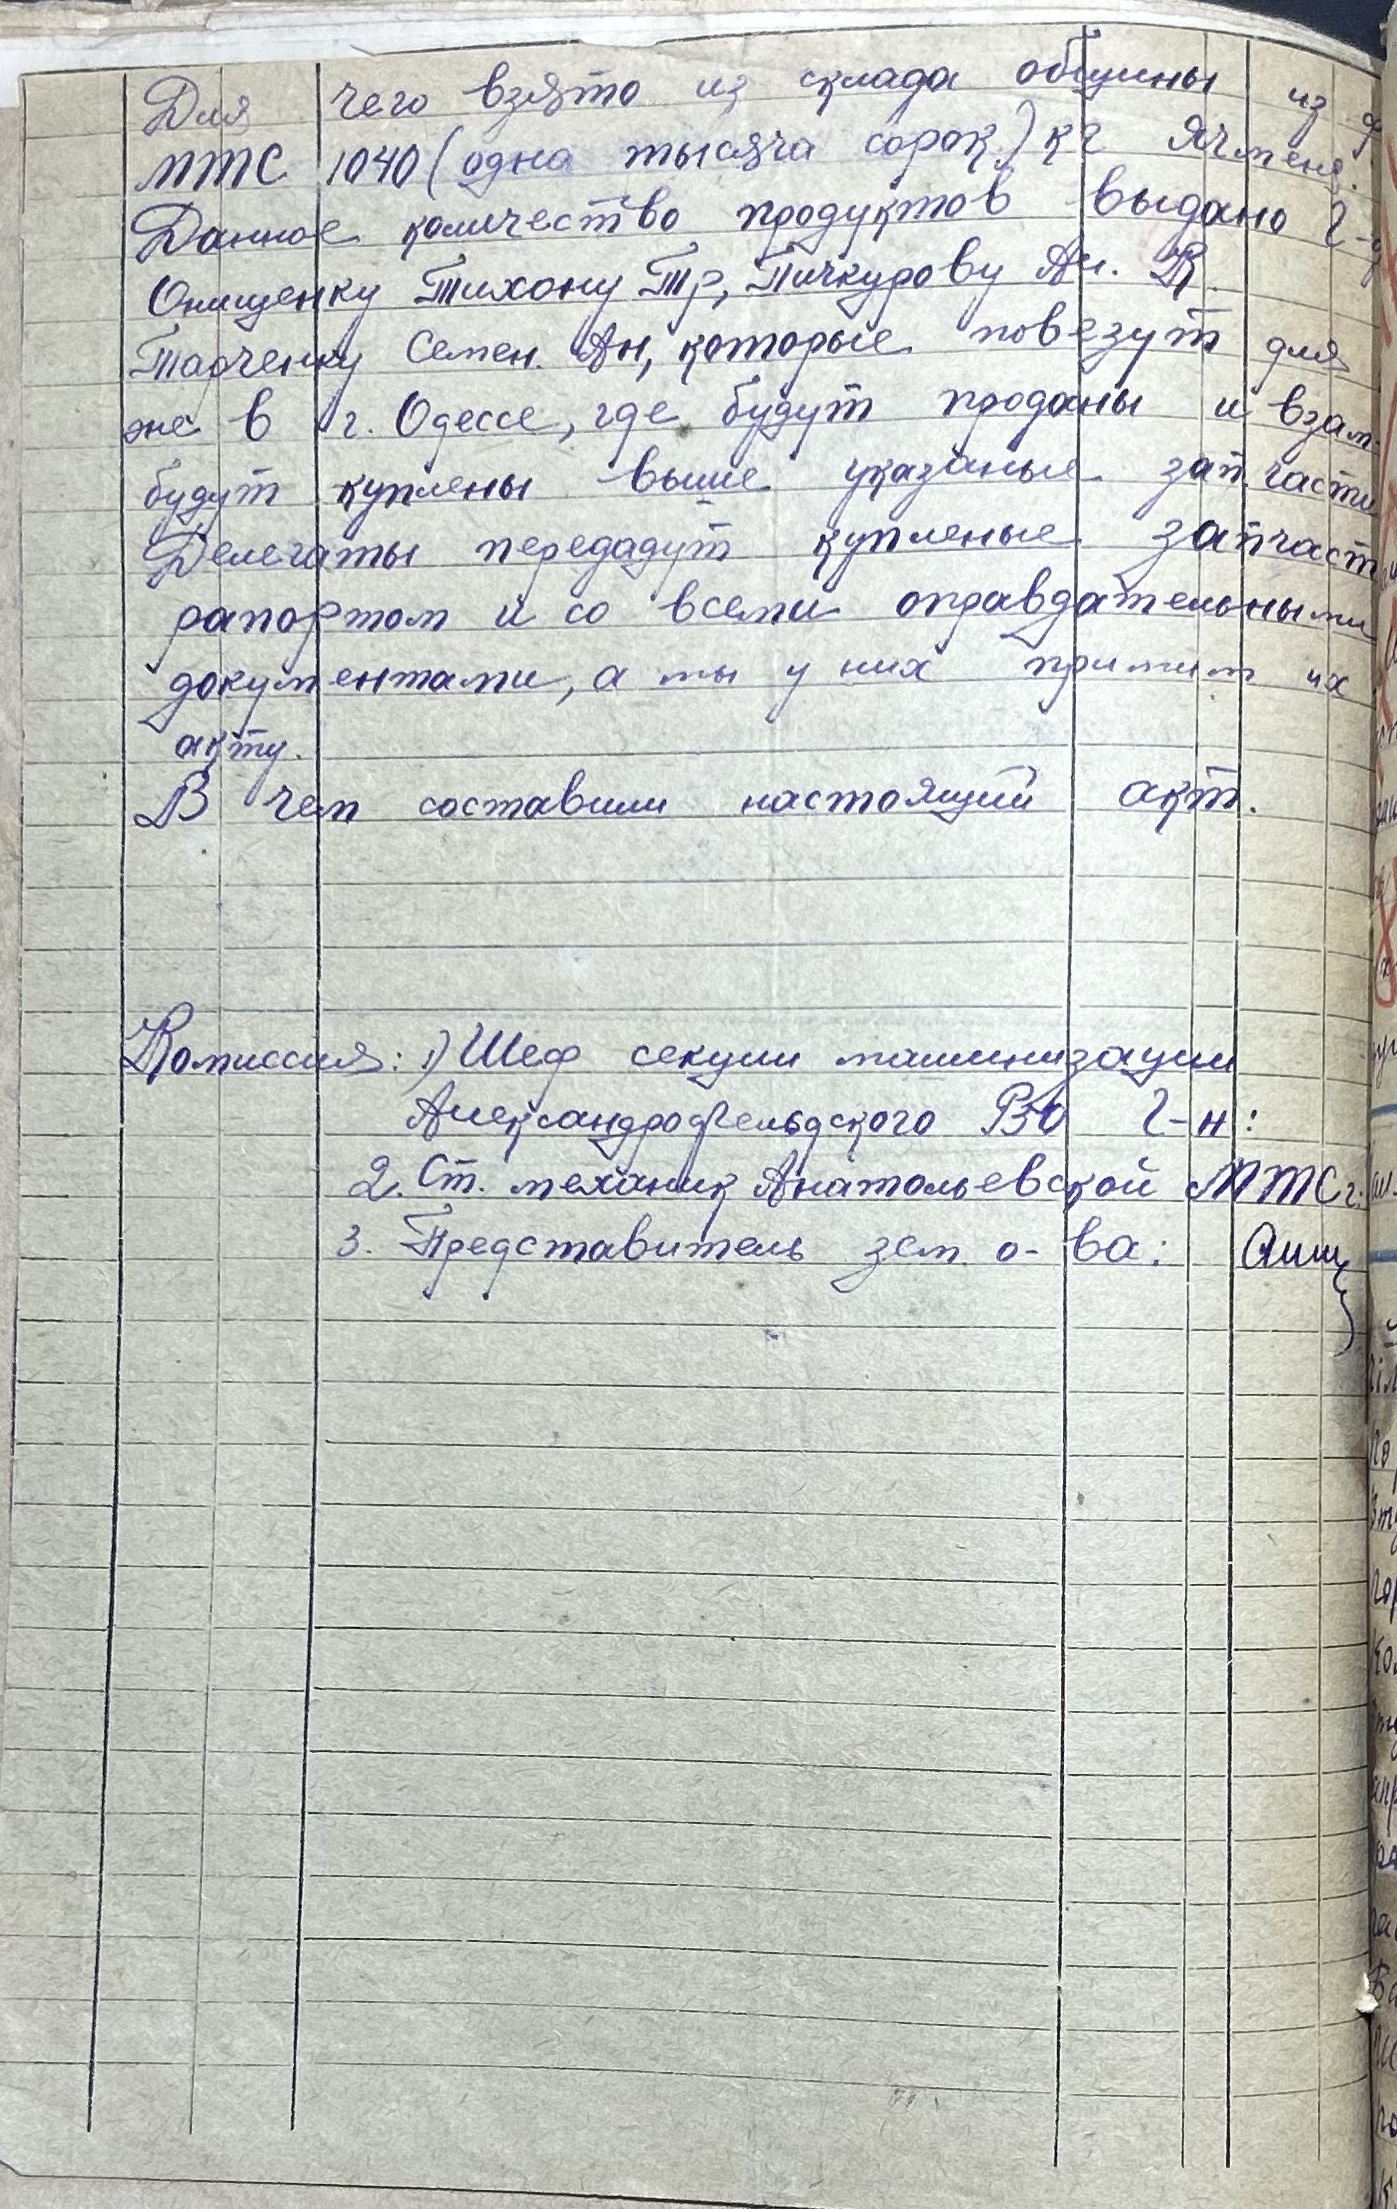 Для чего взято из склада общины из ф
МТС 1040 (одна тысяча сорок) кг ячменя.
Данное количество продуктов выдано г-д
Онищенку Тихону Тр, Пичкурову Ан. К.
Тарченку Семен. Ан, которые повезут для
же в г. Одессе, где будут проданы и взам-
будут куплены выше указаные зап.части
Делегаты передадут купленые запчаст
рапортом и со всеми оправдательными
документами, а мы у них примим их
акту.
В чем составили настоящий акт.
Комиссия: 1) Шеф секции машинизации
Александрофельдского ВО г-н:
2. Ст. механик Анатольевской МТС г.
3. Представитель зем. о-ва: